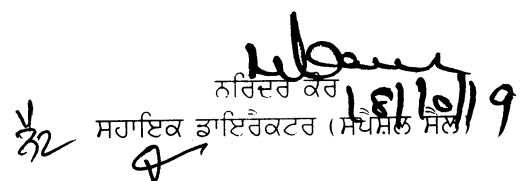 ਨਰਿੰਦਰ ਕੌਰ 18/10/19
ਸਹਾਇਕ ਡਾਇਰੈਕਟਰ (ਸਪੈਸ਼ਲ ਸੈੱਲ)